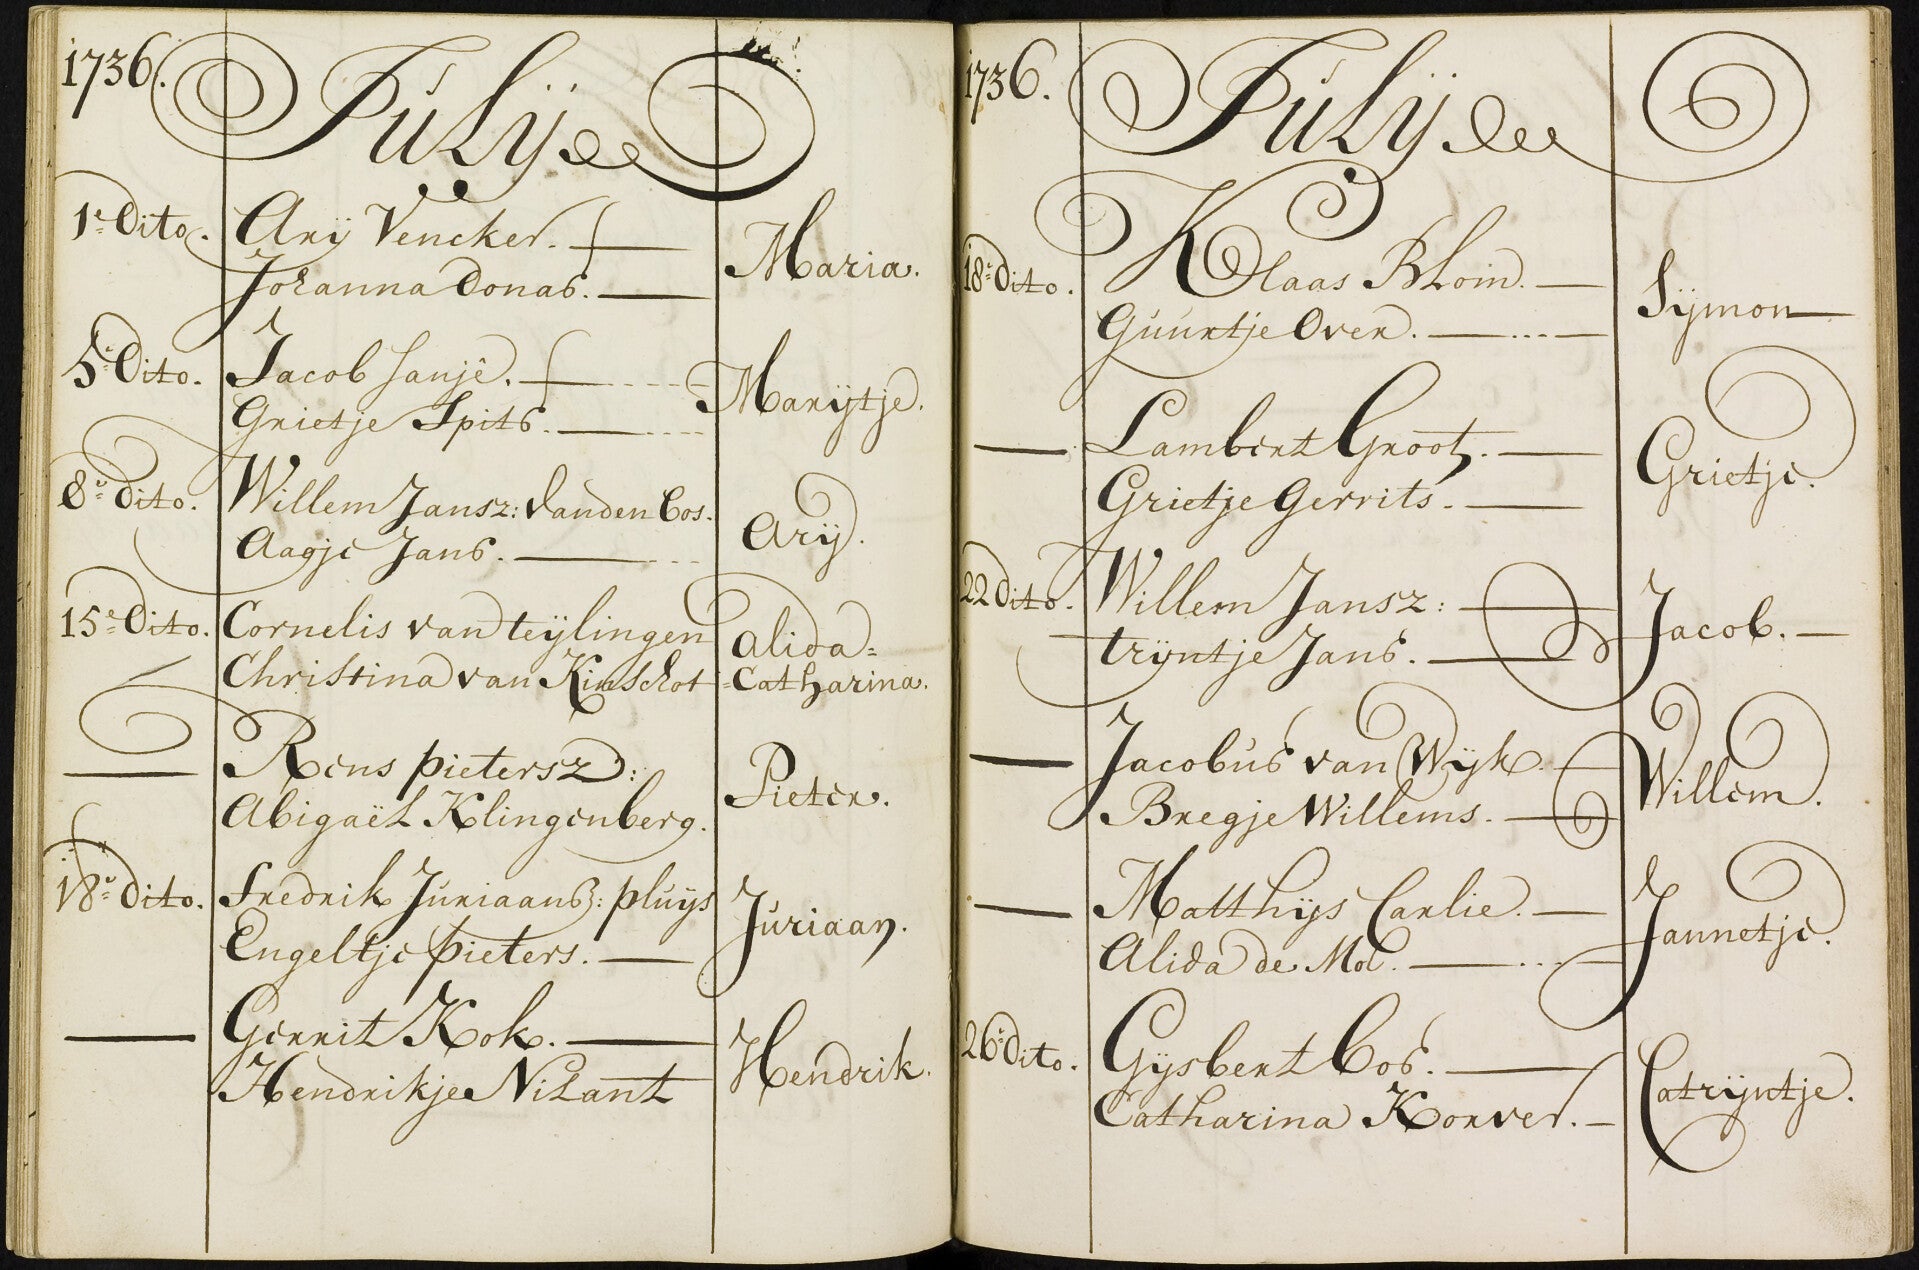 1736.
Julij
1e Dito. Arij Vencker.
Johanna Donas.
Maria.
5e Dito. Jacob Sanjé.
Grietje Spits.
Marijtje.
8e dito. Willem Jansz: vanden Bos.
Aagje Jans.
Arij.
15e Dito. Cornelis van teijlingen
Christina van Kinschot
Alida=
=Catharina.
Rens pietersz:
Abigaël Klingenberg.
Pieter.
18e dito. Fredrik Juriaansz: pluijs
Engeltje pieters.
Juriaan.
Gerrit Kok.
Hendrikje Nilant
Hendrik.
1736.
Julij
18e dito. Klaas Blom.
Guurtje Over.
Sijmon
Lambert Groot.
Grietje Gerrits.
Grietje.
22 dito. Willem Jansz:
trijntje Jans.
Jacob.
Jacobus van Wijk.
Bregje Willems.
Willem.
Matthijs Carlie.
Alida de Mol.
Jannetje.
26e dito. Gijsbert Bos.
Catharina Korver.
Catrijntje.